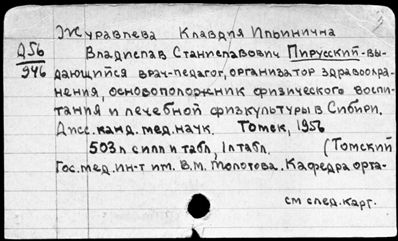 Журавлева Клавдия Ильинична
Д56
946
Владислав Станиславович Пирусский-вы-
дающийся врач-педагог, организатор здравоохра-
нения, основоположник физического воспи-
тания и лечебной физкультуры в Сибири.
Дисс. канд. мед. наук. Томск, 1956
503л с илл и табл, 1л табл. (Томский
Гос. мед. ин-т им. В.М. Молотова. Кафедра орга-
см след. карт.